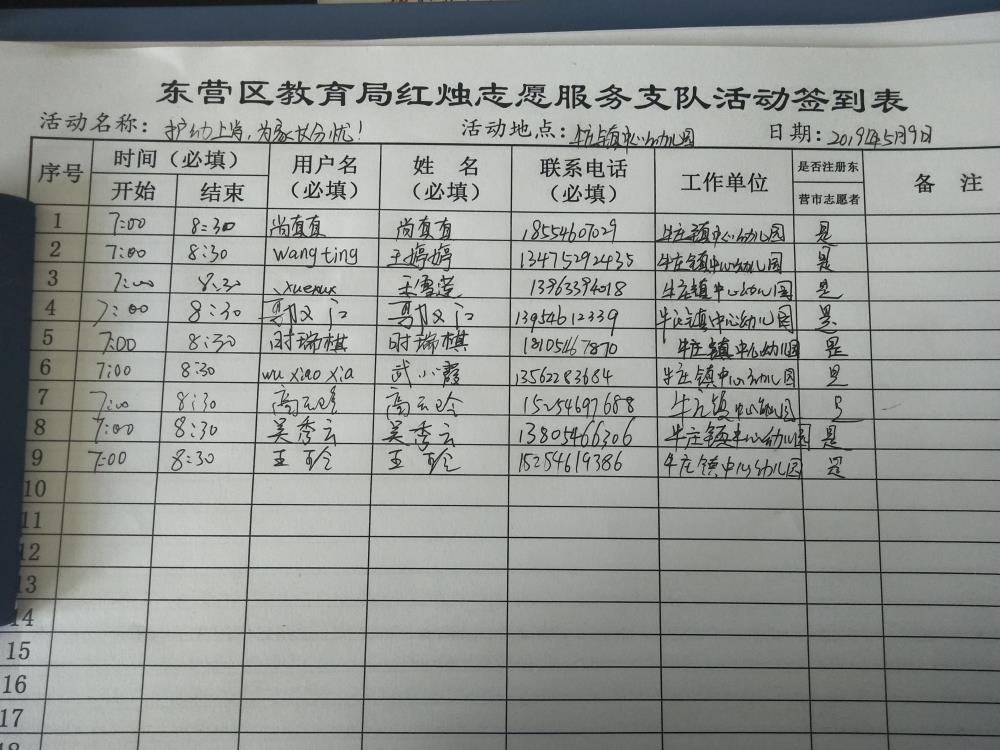 东营区教育局红烛志愿服务支队活动签到表
活动名称：护幼上岗，为家长分忧！ 活动地点：牛庄镇中心幼儿园 日期：2019年5月9日
序号 时间（必填） 用户名（必填） 姓名（必填） 联系电话（必填） 工作单位 是否注册东营市志愿者 备注
开始 结束
1 7:00 8:30 尚真真 尚真真 18554607029 牛庄镇中心幼儿园 是
2 7:00 8:30 wangting 王婷婷 13475292435 牛庄镇中心幼儿园 是
3 7:00 8:30 13963394018 牛庄镇中心幼儿园 是
4 7:00 8:30 13954612339 牛庄镇中心幼儿园 是
5 7:00 8:30 时瑞棋 时瑞棋 18105467870 牛庄镇中心幼儿园 是
6 7:00 8:30 wu xiao xia 武小霞 13562283684 牛庄镇中心幼儿园 是
7 7:00 8:30 15254697688 牛庄镇中心幼儿园 是
8 7:00 8:30 吴秀云 吴秀云 13805466306 牛庄镇中心幼儿园 是
9 7:00 8:30 王玲 王玲 15254619386 牛庄镇中心幼儿园 是
10
11
12
13
14
15
16
17
18